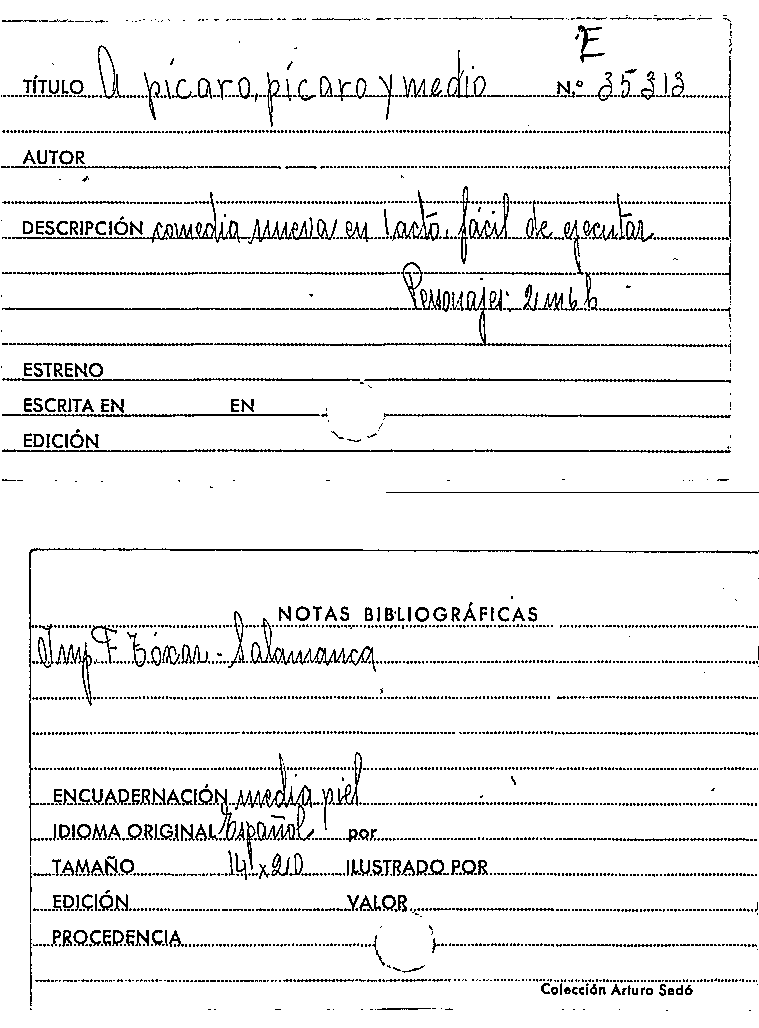 E
TÍTULO A pícaro, pícaro y medio N.º 35313
AUTOR
DESCRIPCIÓN comedia nueva en 1 acto, fácil de ejecutar
Personajes: 2 m 6 h
ESTRENO
ESCRITA EN EN
EDICIÓN
NOTAS BIBLIOGRÁFICAS
Imp. F. Tóxar - Salamanca
ENCUADERNACIÓN media piel
IDIOMA ORIGINAL Español por
TAMAÑO 141 x 210 ILUSTRADO POR
EDICIÓN VALOR
PROCEDENCIA
Colección Arturo Sedó